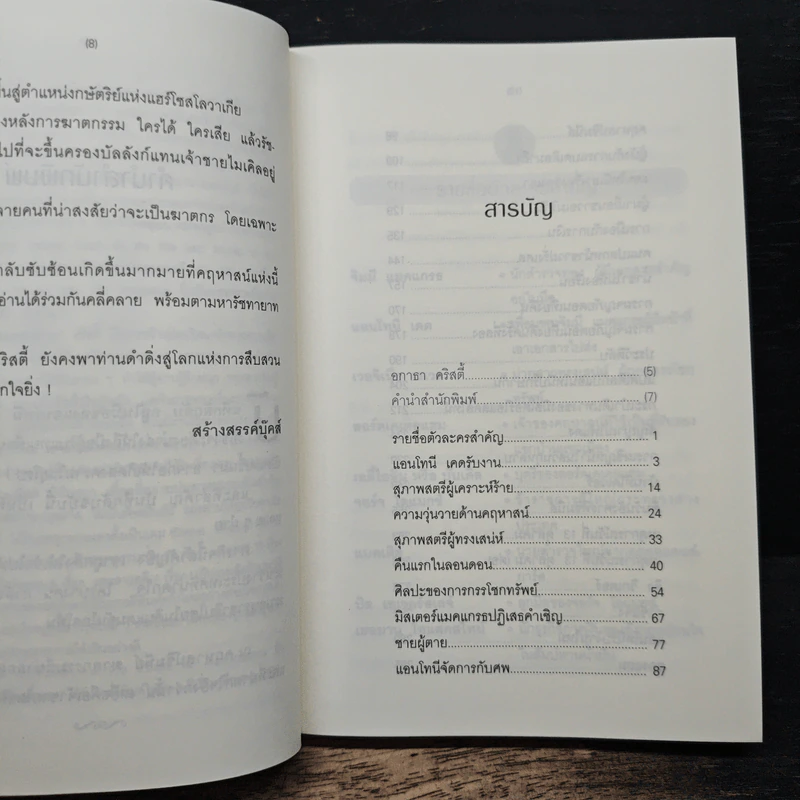 (8)
ขึ้นสู่ตำแหน่งกษัตริย์แห่งแฮร์โซสโลวาเกีย
งหลังการฆาตกรรม ใครได้ ใครเสีย แล้วรัช-
ไปที่จะขึ้นครองบัลลังก์แทนเจ้าชายไมเคิลอยู่
ลายคนที่น่าสงสัยว่าจะเป็นฆาตกร โดยเฉพาะ
ลับซับซ้อนเกิดขึ้นมากมายที่คฤหาสน์แห่งนี้
อ่านได้ร่วมกันคลี่คลาย พร้อมตามหารัชทายาท
ริสตี้ ยังคงพาท่านดำดิ่งสู่โลกแห่งการสืบสวน
กใจยิ่ง !
สร้างสรรค์บุ๊คส์
สารบัญ
อกาธา คริสตี้ (5)
คำนำสำนักพิมพ์ (7)
รายชื่อตัวละครสำคัญ 1
แอนโทนี เคดรับงาน 3
สุภาพสตรีผู้เคราะห์ร้าย 14
ความวุ่นวายด้านคฤหาสน์ 24
สุภาพสตรีผู้ทรงเสน่ห์ 33
คืนแรกในลอนดอน 40
ศิลปะของการกรรโชกทรัพย์ 54
มิสเตอร์แมคแกรธปฏิเสธคำเชิญ 67
ชายผู้ตาย 77
แอนโทนีจัดการกับศพ 87